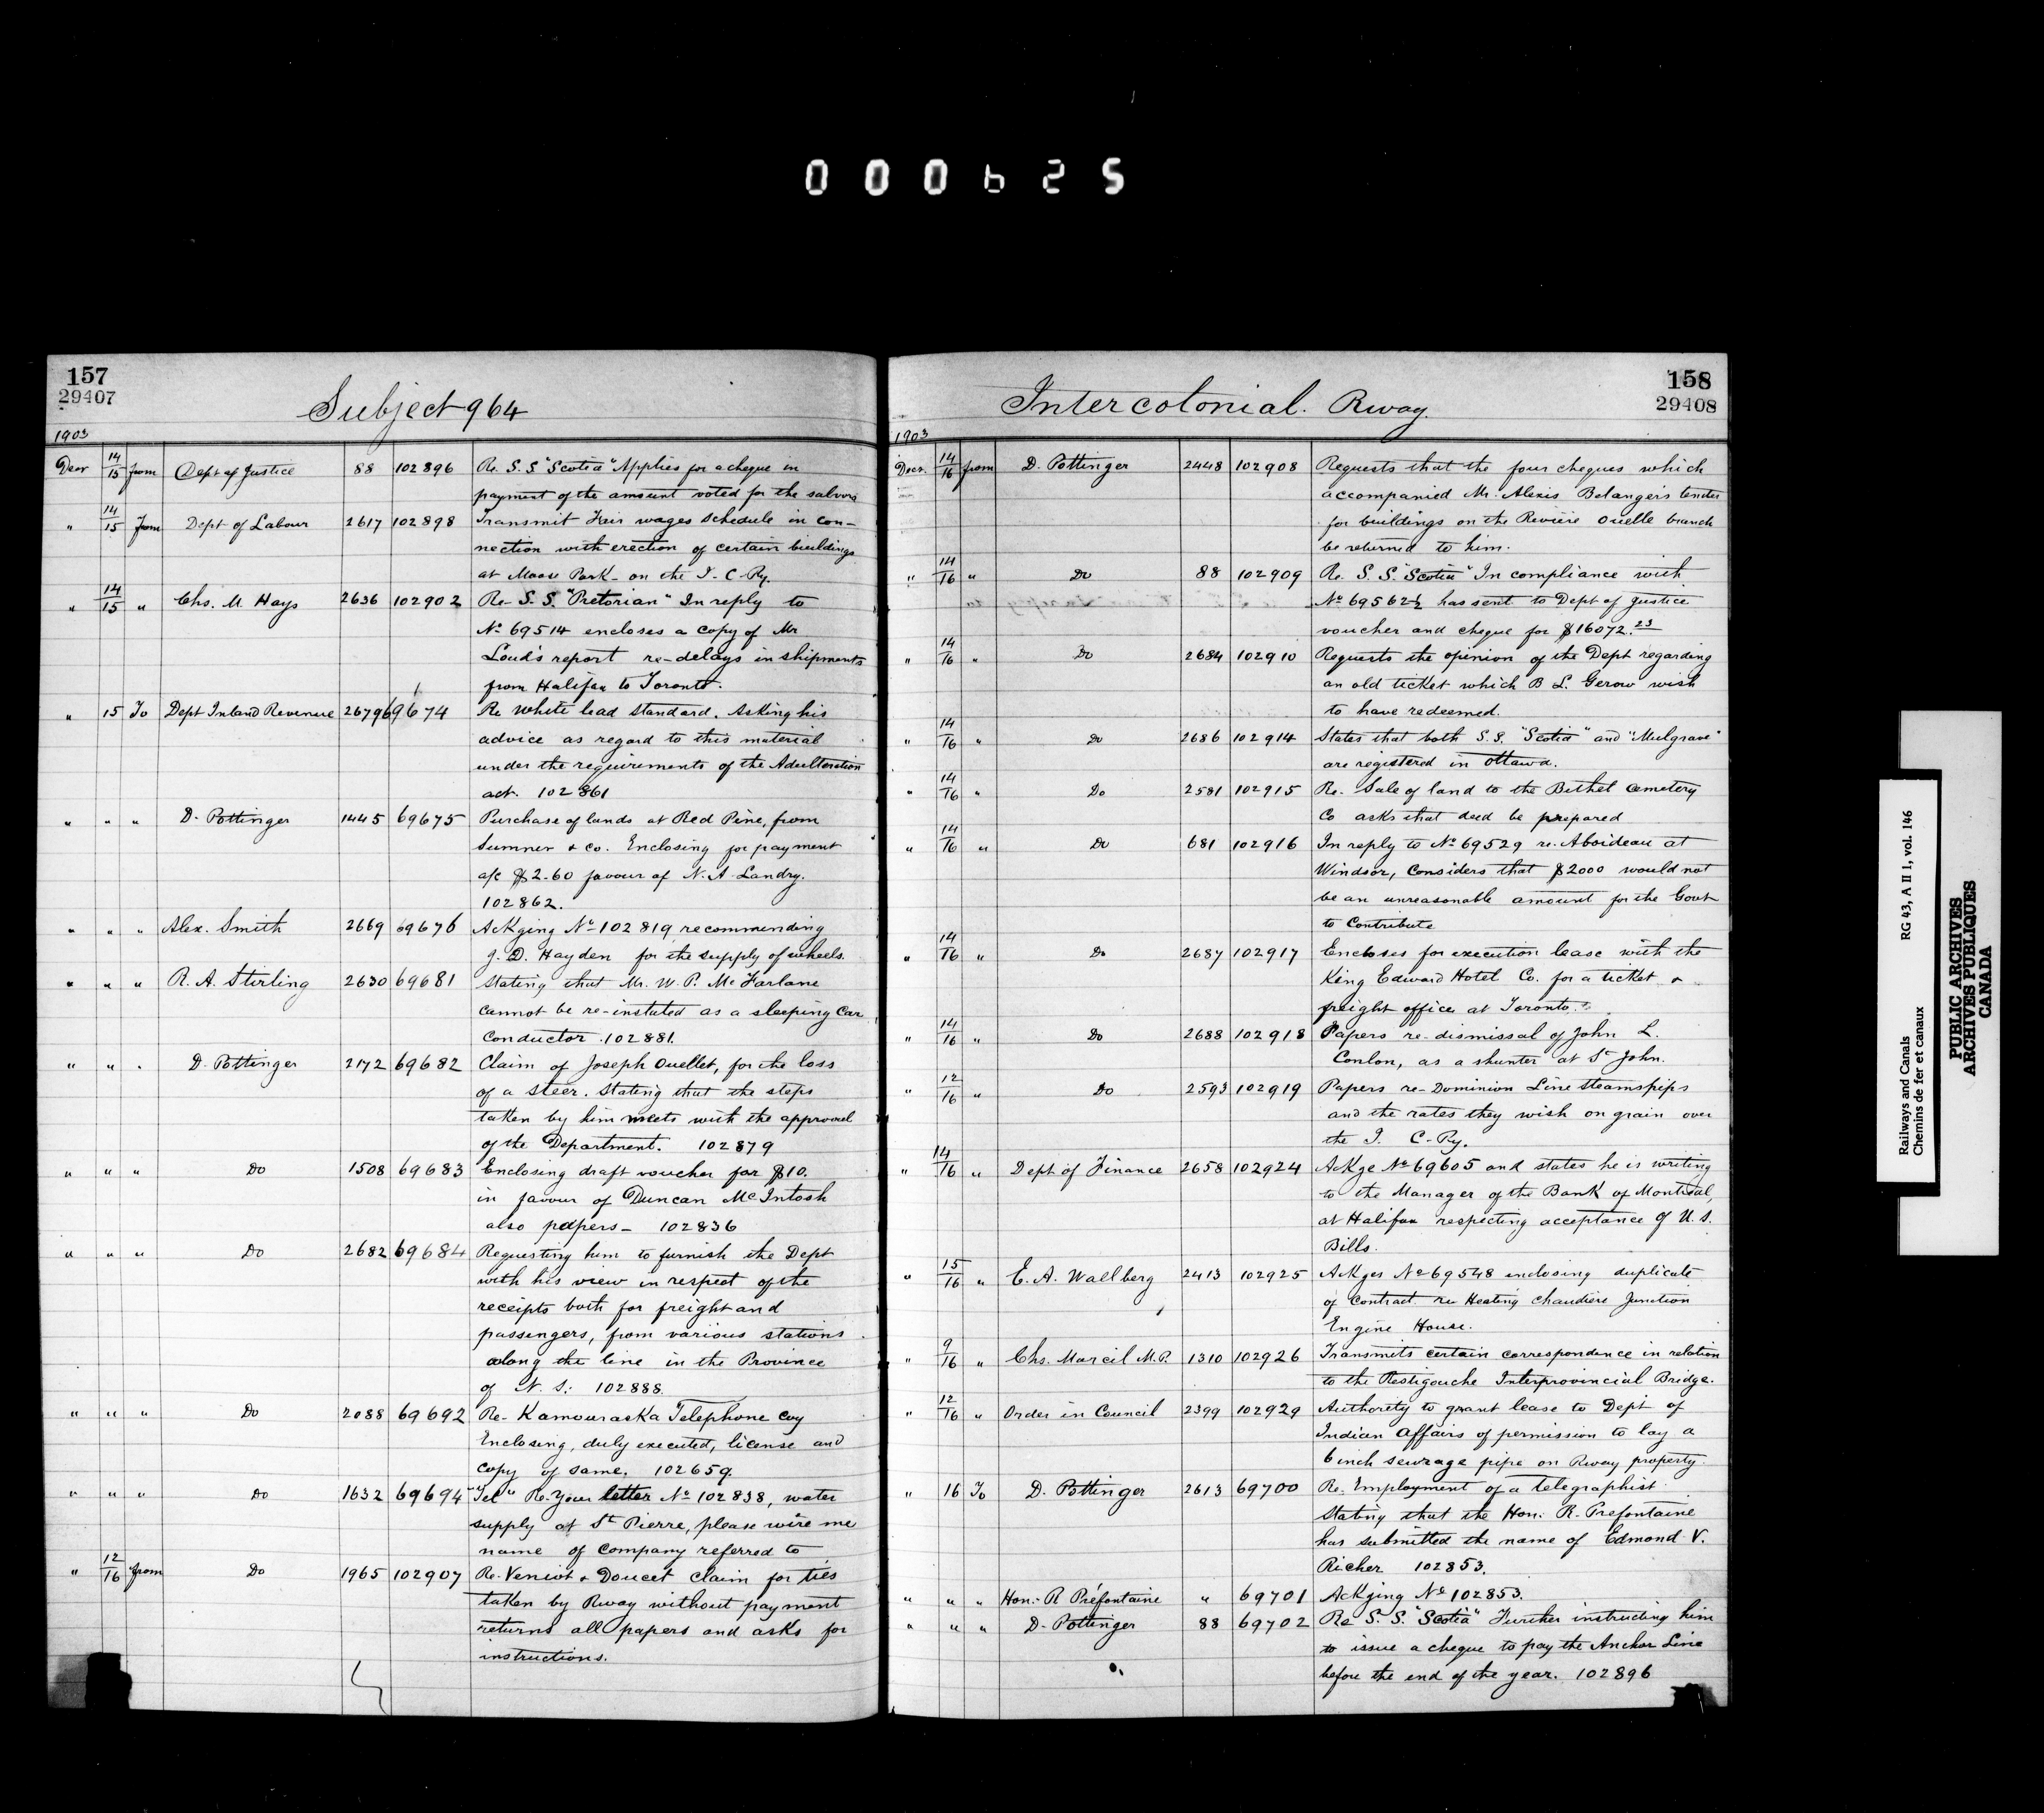 000625
157
29407
Subject 964
1903
Decr 14/15 from Dept of Justice 88 102896 Re. S.S "Scotia" Applies for a cheque in
payment of the amount voted for the salvors
" 14/15 From Dept of Labour 2617 102898 Transmit Fair wages schedule in con-
nection with erection of certain buildings
at Moose Park - on the I. C. Ry.
" 14/15 " Chs. M. Hays 2636 102902 Re- S. S. "Pretorian" In reply to
No 69514 encloses a copy of Mr
Loud's report re-delays in shipments
from Halifax to Toronto.
" 15 To Dept Inland Revenue 2679 69674 Re White lead standard. Asking his
advice as regard to this material
under the requirements of the Adulteration
act. 102861
" " " D. Pottinger 1445 69675 Purchase of lands at Red Pine, from
Sumner & Co. Enclosing for payment
a/c $2.60 favour of N. A. Landry.
102862.
" " " Alex. Smith 2669 69676 Ackging No 102819 recommending
J. D. Hayden for the supply of wheels.
" " " R. A. Stirling 2630 69681 Stating that Mr. W. P. Mc Farlane
cannot be re-instated as a sleeping Car
Conductor. 102881.
" " " D. Pottinger 2172 69682 Claim of Joseph Ouellet, for the loss
of a steer. Stating that the steps
taken by him meets with the approval
of the Department. 102879
" " " Do 1508 69683 Enclosing draft voucher for $10.
in favour of Duncan McIntosh
also papers - 102836
" " " Do 2682 69684 Requesting him to furnish the Dept
with his view in respect of the
receipts both for freight and
passengers, from various stations
along the line in the Province
of N. S. 102888.
" " " Do 2088 69692 Re- Kamouraska Telephone Coy
Enclosing, duly executed, license and
copy of same. 102659.
" " " Do 1632 69694 "Tel" Re- Your letter No 102838, water
supply at St Pierre, please wire me
name of Company referred to
" 12/16 from Do 1965 102907 Re. Veniot & Doucet claim for ties
taken by Rway without payment
returns all papers and asks for
instructions.
158
29408
Intercolonial. Rway.
1903
Decr. 14/16 from D. Pottinger 2448 102908 Requests that the four cheques which
accompanied Mr. Alexis Belanger's tender
for buildings on the Reviere Ouelle branch
be returned to him.
" 14/16 " Do 88 102909 Re. S. S. "Scotia" In compliance with
No 69562½ has sent to Dept of Justice
voucher and cheque for $16072.23
" 14/16 " Do 2684 102910 Requests the opinion of the Dept regarding
an old ticket which B L. Gerow wish
to have redeemed.
" 14/16 " Do 2686 102914 States that both S. S. "Scotia" and "Mulgrave"
are registered in Ottawa.
" 14/16 " Do 2581 102915 Re. Sale of land to the Bethel Cemetery
Co asks that deed be prepared
" 14/16 " Do 681 102916 In reply to No 69529 re. Aboideau at
Windsor, Considers that $2000 would not
be an unreasonable amount for the Govt
to Contribute
" 14/16 " Do 2687 102917 Encloses for execution lease with the
King Edward Hotel Co. for a ticket &
freight office at Toronto.
" 14/16 " Do 2688 102918 Papers re-dismissal of John L.
Conlon, as a shunter at St John.
" 12/16 " Do 2593 102919 Papers re- Dominion Line steamships
and the rates they wish on grain over
the I. C. Ry.
" 14/16 " Dept of Finance 2658 102924 Ackge No 69605 and states he is writing
to the Manager of the Bank of Montreal,
at Halifax respecting acceptance of U. S.
Bills.
" 15/16 " E. A. Wallberg 2413 102925 Ackges No 69548 enclosing duplicate
of Contract re Heating Chaudiere Junction
Engine House.
" 9/16 " Chs. Marcil M.P. 1310 102926 Transmits certain correspondence in relation
to the Restigouche Interprovincial Bridge.
" 12/16 " Order in Council 2399 102929 Authorety to grant lease to Dept of
Indian Affairs of permission to lay a
6 inch sewrage pipe on Rway property.
" 16 To D. Pottinger 2613 69700 Re. Employment of a telegraphist
Stating that the Hon. R. Prefontaine
has submitted the name of Edmond V.
Richer 102853.
" " " Hon. R Préfontaine " 69701 Ackging No 102853.
" " " D. Pottinger 88 69702 Re S. S. "Scotia" Further instructing him
to issue a cheque to pay the Anchor Line
before the end of the year. 102896
Railways and Canals RG 43, A II 1, vol. 146
Chemins de fer et canaux
PUBLIC ARCHIVES
ARCHIVES PUBLIQUES
CANADA